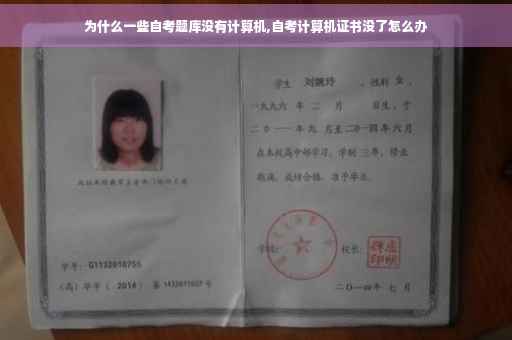 为什么一些自考题库没有计算机,自考计算机证书没了怎么办
学生 刘婉玲 ，性别 女 ，
一九九六 年 二 月 日生，于
二〇一一 年 九 月至 二〇一四 年 六 月
在本校高中部学习，学制 三 年，修业
期满，成绩合格，准予毕业。
学校：
校长：
学号： G1132010755
（高）毕字（ 2014 ）第 1432011027 号
二〇一四年 七 月